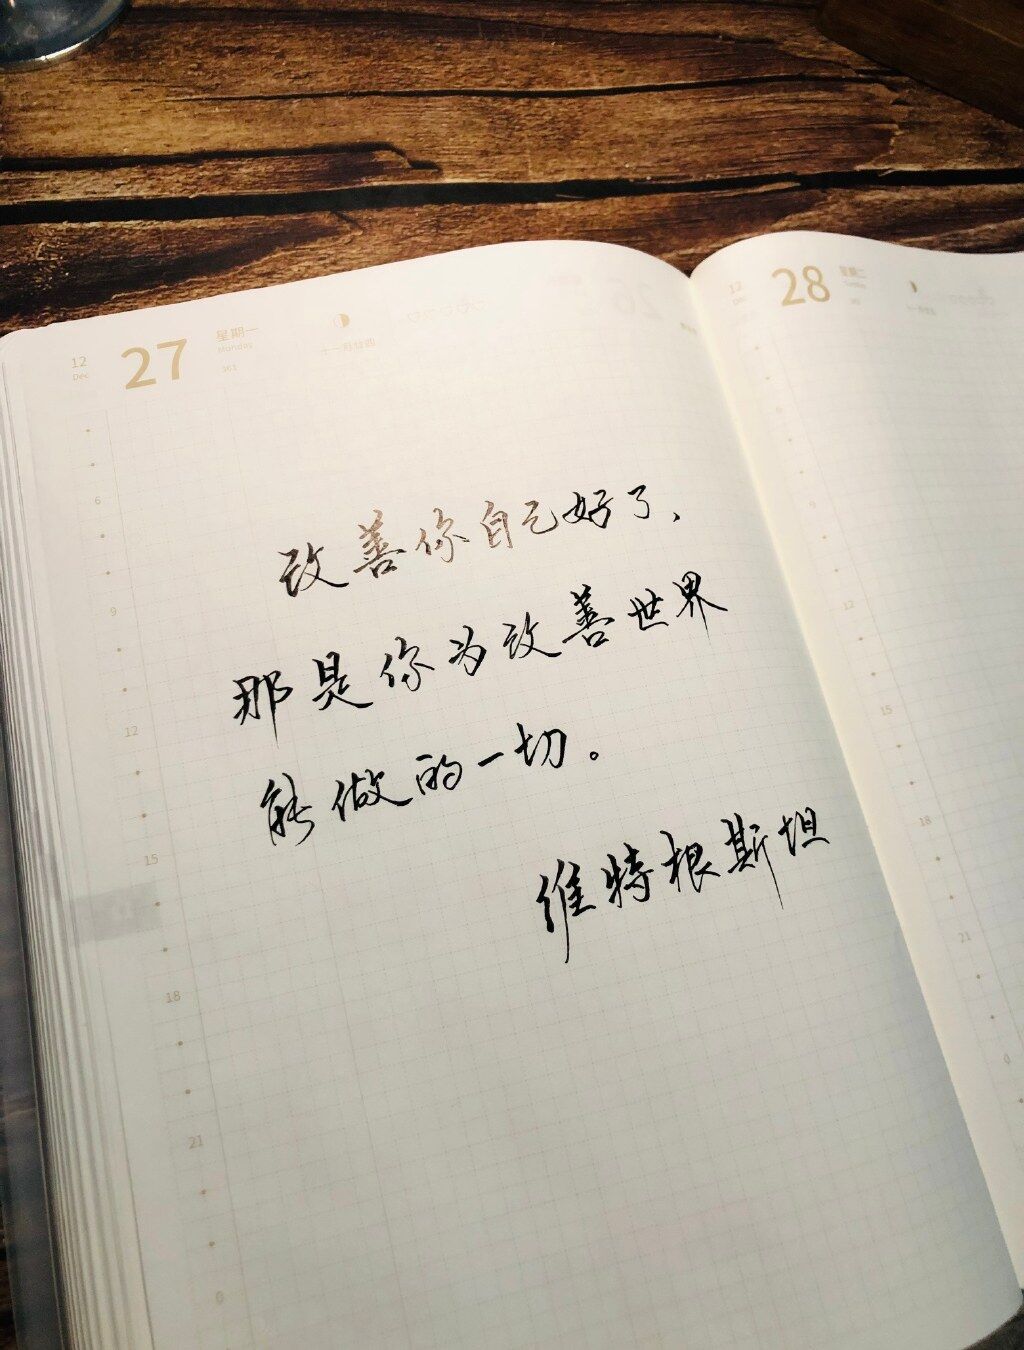 12
Dec
27
星期一
Monday
361
十一月廿四
改善你自己好了、
那是你为改善世界
能做的一切。
维特根斯坦
6
9
12
15
18
21
0
12
28
星期二
9
12
15
18
21
0